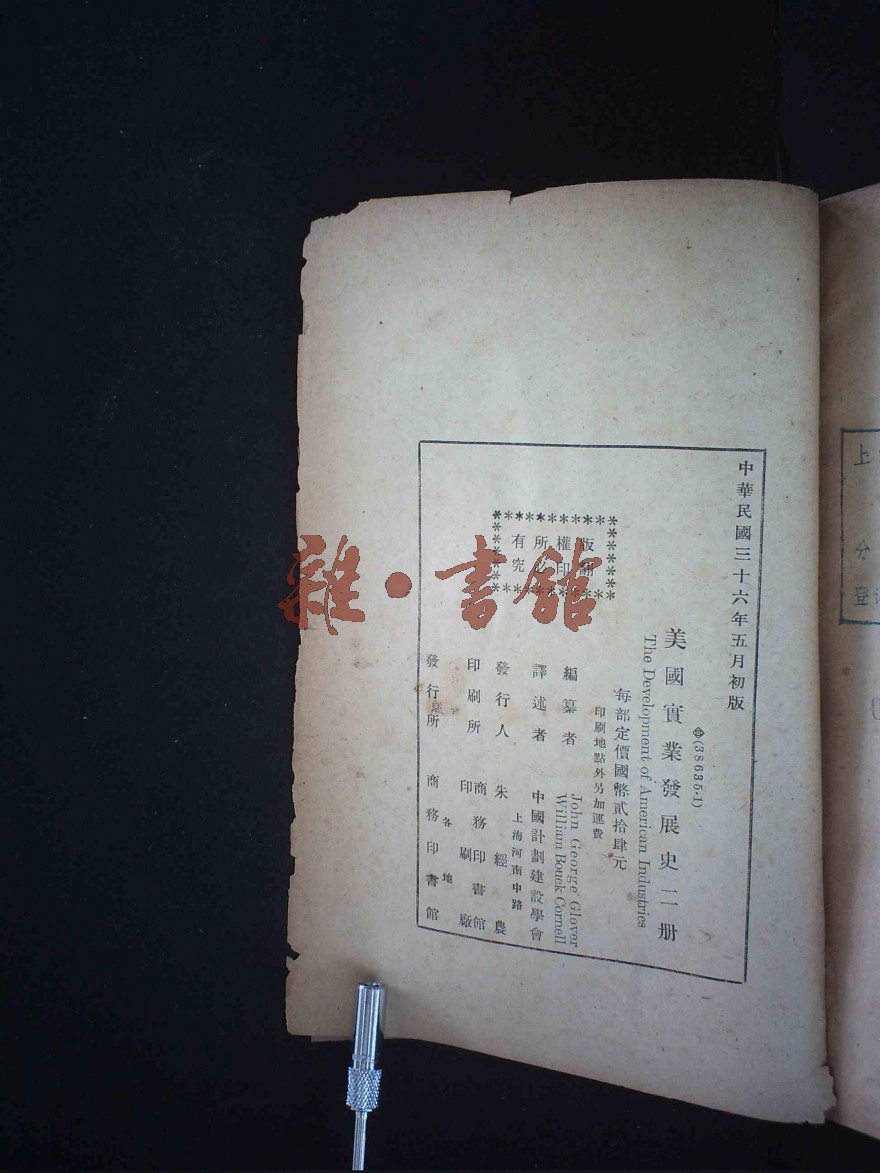 中華民國三十六年五月初版
㊥(38635·1)
美國實業發展史二册
The Development of American Industries
每部定價國幣貳拾肆元
印刷地點外另加運費
版權所有
翻印必究
編纂者 John George Glover
William Bouck Cornell
譯述者 中國計劃建設學會
上海河南中路
發行人 朱經農
印刷所 商務印書館
印刷廠
各地
發行所 商務印書館
雜·書館
上
分
登